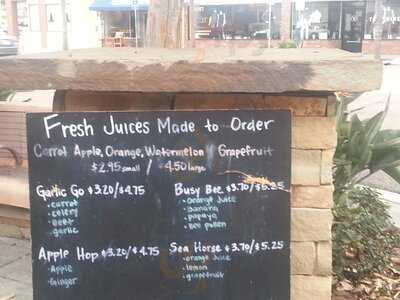 Fresh Juices Made to Order
Carrot Apple, Orange, Watermelon / Grapefruit
$2.95 small / 4.50 large
Garlic Go $3.20/$4.75
- carrot
- celery
- beet
- garlic
Busy Bee $3.70/$5.25
- orange juice
- banana
- papaya
- bee pollen
Apple Hop $3.20/$4.75
- Apple
- Ginger
Sea Horse $3.70/$5.25
- orange juice
- lemon
- grapefruit